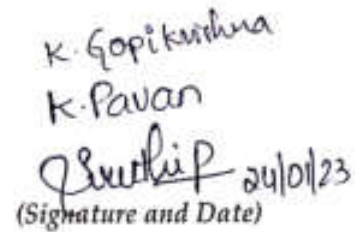 K. Gopikrishna
K. Pavan
24/01/23
(Signature and Date)